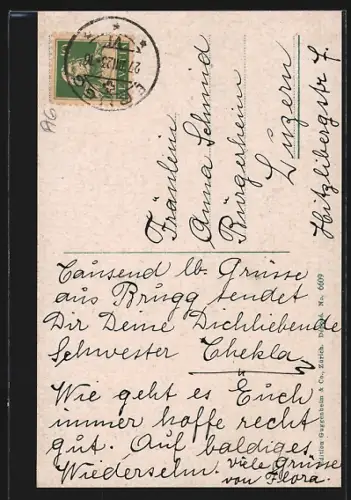 Fräulein
Anna Schmid
Bürgerheim
Luzern
Hitzlibergstr 7.
Tausend lb. Grüsse
aus Brugg sendet
Dir Deine Dichliebende
Schwester Thekla
Wie geht es Euch
immer hoffe recht
gut. Auf baldiges
Wiedersehn. viele Grüsse
von Flora.
Edition Guggenheim & Co., Zürich. No. 6609
HELVETIA
A6